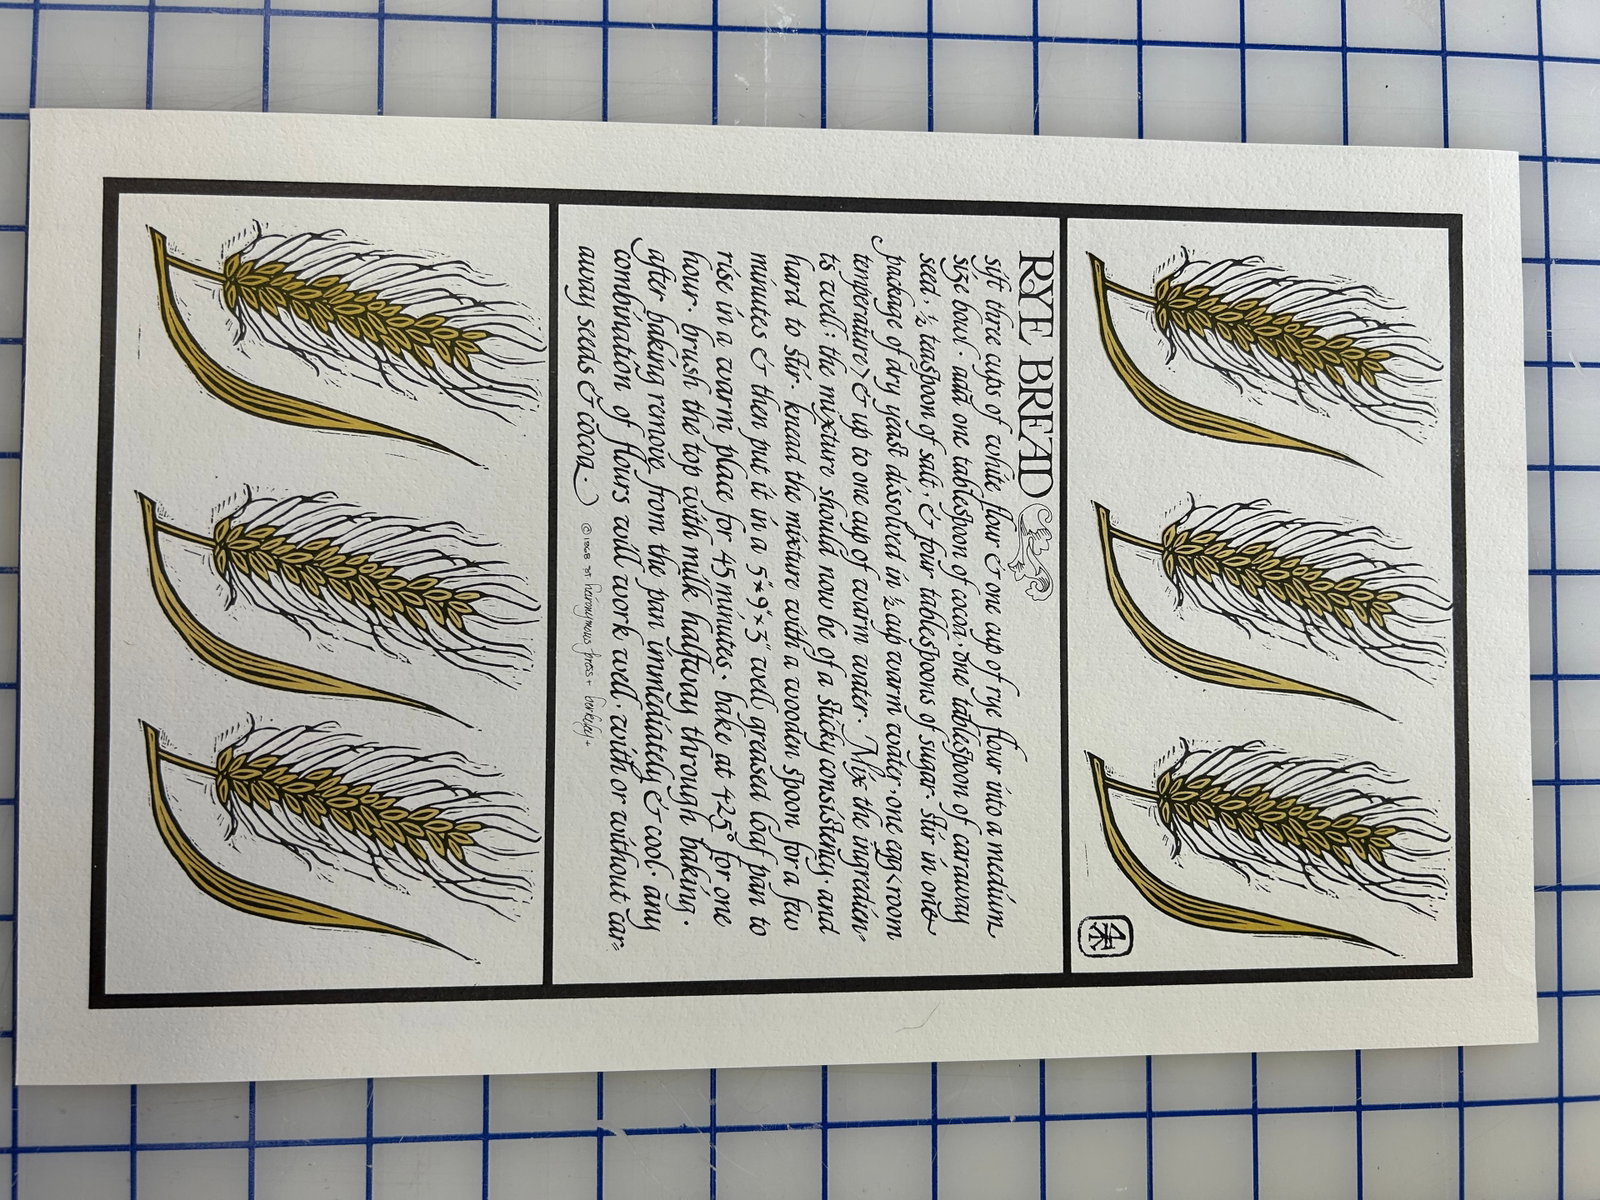 RYE BREAD
sift three cups of white flour & one cup of rye flour into a medium
size bowl · add one tablespoon of cocoa · one tablespoon of caraway
seed · ½ teaspoon of salt · & four tablespoons of sugar · stir in one
package of dry yeast dissolved in ½ cup warm water · one egg <room
temperature> & up to one cup of warm water · Mix the ingredien-
ts well : the mixture should now be of a sticky consistency · and
hard to stir · knead the mixture with a wooden spoon for a few
minutes & then put it in a 5"×9"×3" well greased loaf pan to
rise in a warm place for 45 minutes · bake at 425° for one
hour · brush the top with milk halfway through baking ·
after baking remove from the pan immediately & cool · any
combination of flours will work well · with or without car=
away seeds & cocoa ·
© 1968 press + berkeley +